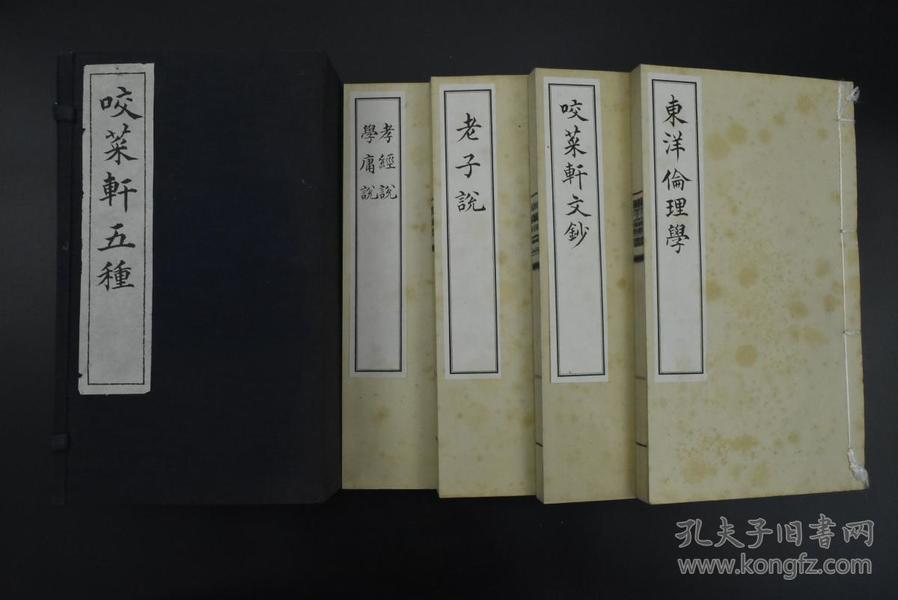 咬菜軒五種
孝經說
學庸說
老子說
咬菜軒文鈔
東洋倫理學
孔夫子旧书网
www.kongfz.com